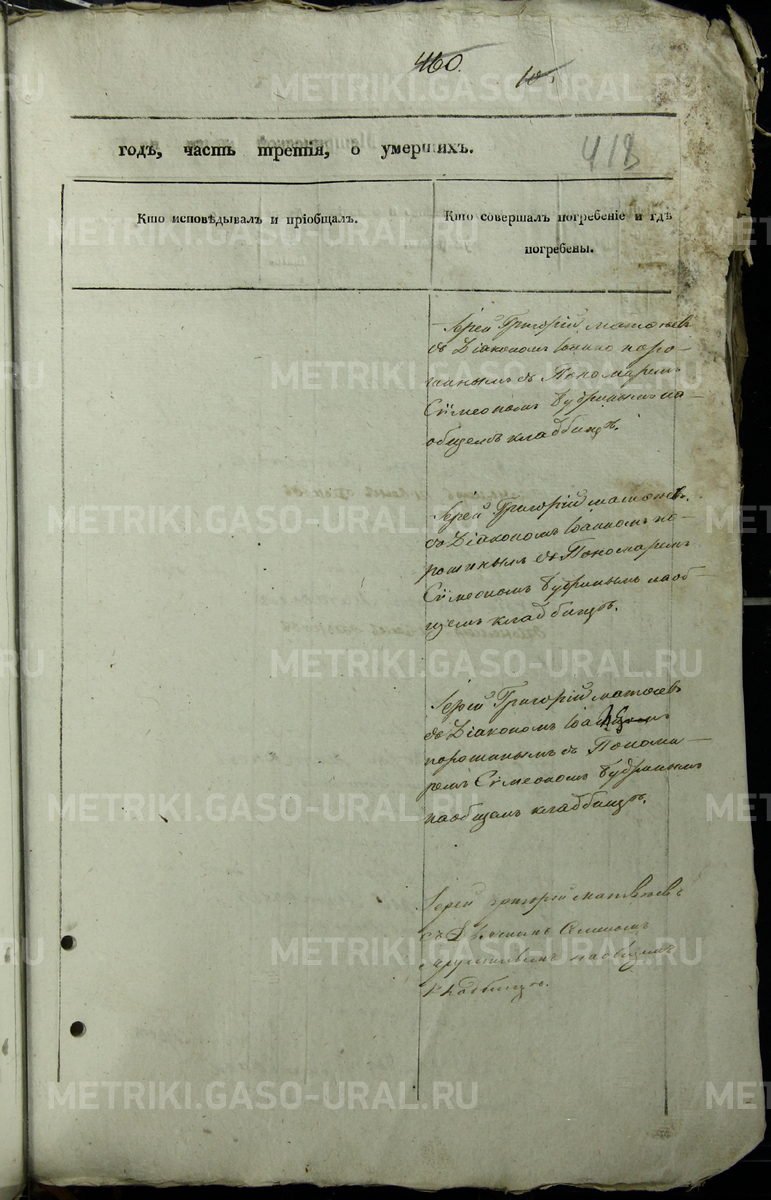 460.
10.
418
годъ, часть третія, о умершихъ.
Кто исповѣдывалъ и пріобщалъ.
Кто совершалъ погребеніе и гдѣ
погребены.
Іерей Григорій Матвѣевъ
съ Діакономъ Іоанно поро-
шинымъ съ Пономаремъ
Сѵмеономъ Кудринымъ на
общемъ кладбищѣ.
Іерей Григорій Матвѣевъ.
съ Діакономъ Іоанномъ по-
рошинымъ съ Пономаремъ
Сѵмеономъ Кудринымъ наоб-
щемъ кладбищѣ.
Іерей Григорій Матвѣевъ
съ Діакономъ
порошинымъ съ Понома-
ремъ Сѵмеономъ Кудринымъ
наобщемъ кладбищѣ.
Іерей Григорій Матвѣевъ
съ
наобщемъ
кладбищѣ.
METRIKI.GASO-URAL.RU